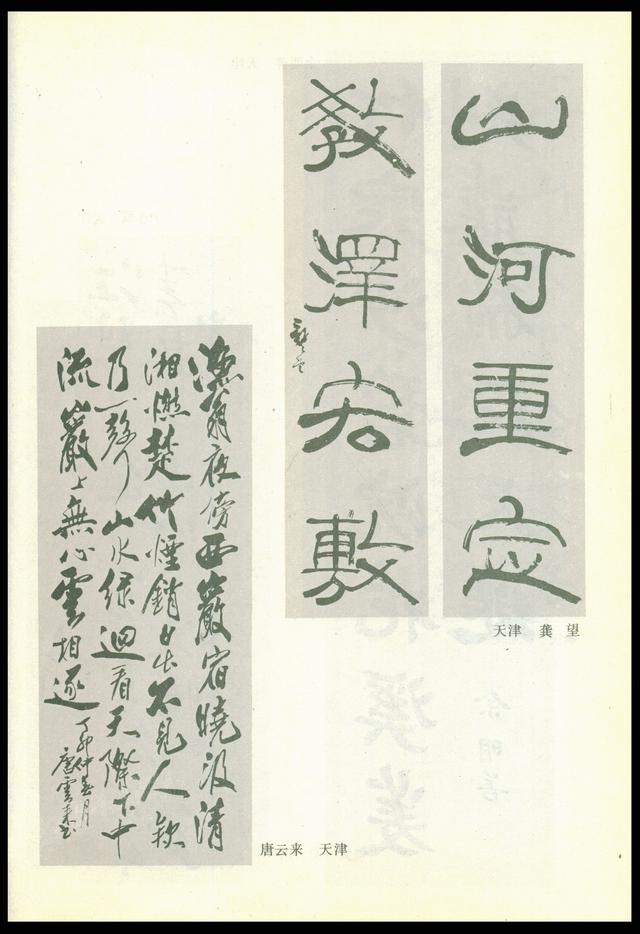 山河重定
教澤宏敷
龔望
天津 龚望
漁翁夜傍西巖宿曉汲清
湘燃楚竹煙銷日出不見人欸
乃一聲山水綠迴看天際下中
流巖上無心雲相逐
丁卯仲春月
唐雲来书
唐云来 天津